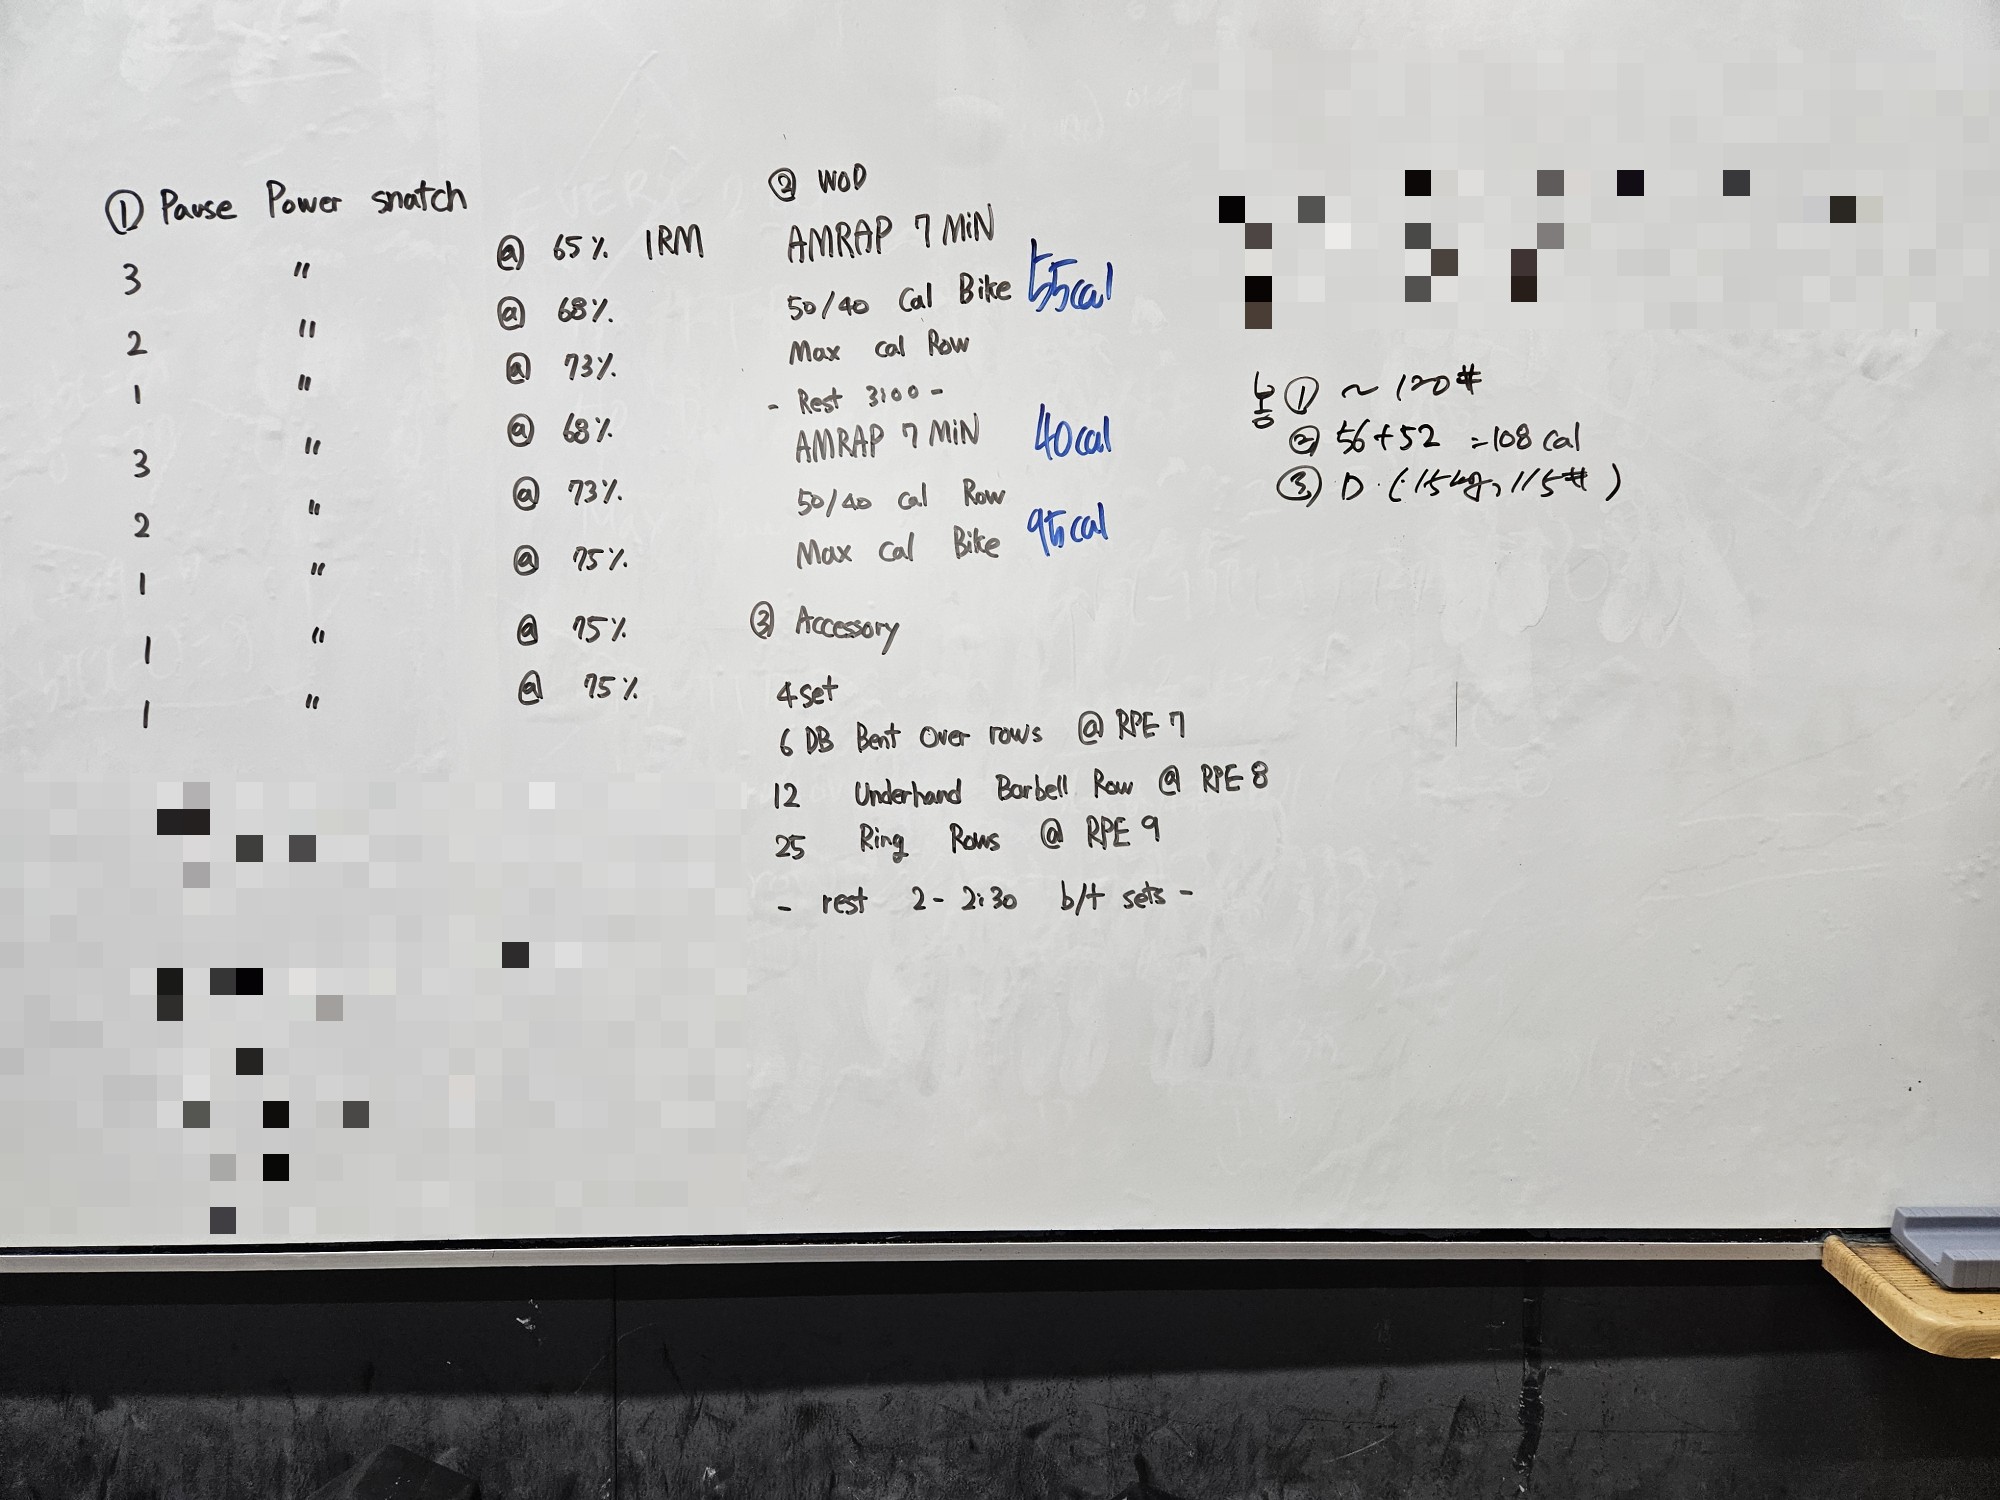 ① Pause Power snatch
3 " @ 65% 1RM
2 " @ 68%
1 " @ 73%
3 " @ 68%
2 " @ 73%
1 " @ 75%
1 " @ 75%
1 " @ 75%
② WOD
AMRAP 7 MiN
50/40 Cal Bike 55cal
Max cal Row
- Rest 3:00 -
AMRAP 7 MiN 40cal
50/40 cal Row
Max Cal Bike 95cal
③ Accessory
4 set
6 DB Bent Over rows @ RPE 7
12 Underhand Barbell Row @ RPE 8
25 Ring Rows @ RPE 9
- rest 2 - 2:30 b/t sets -
농 ① ~ 120#
② 56+52 =108 cal
③ D. (15kg, 115#)